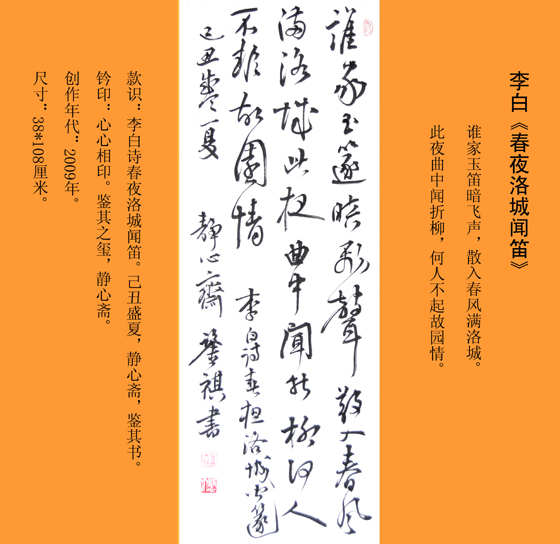 李白《春夜洛城闻笛》
谁家玉笛暗飞声，散入春风满洛城。
此夜曲中闻折柳，何人不起故园情。
誰家玉篴暗飛聲散入春風
滿洛城此夜曲中聞折柳何人
不起故園情 李白詩春夜洛城聞篴
己丑盛夏 靜心齋 鑒祺書
款识：李白诗春夜洛城闻笛。己丑盛夏，静心斋，鉴其书。
钤印：心心相印。鉴其之玺，静心斋。
创作年代：2009年。
尺寸：38*108厘米。